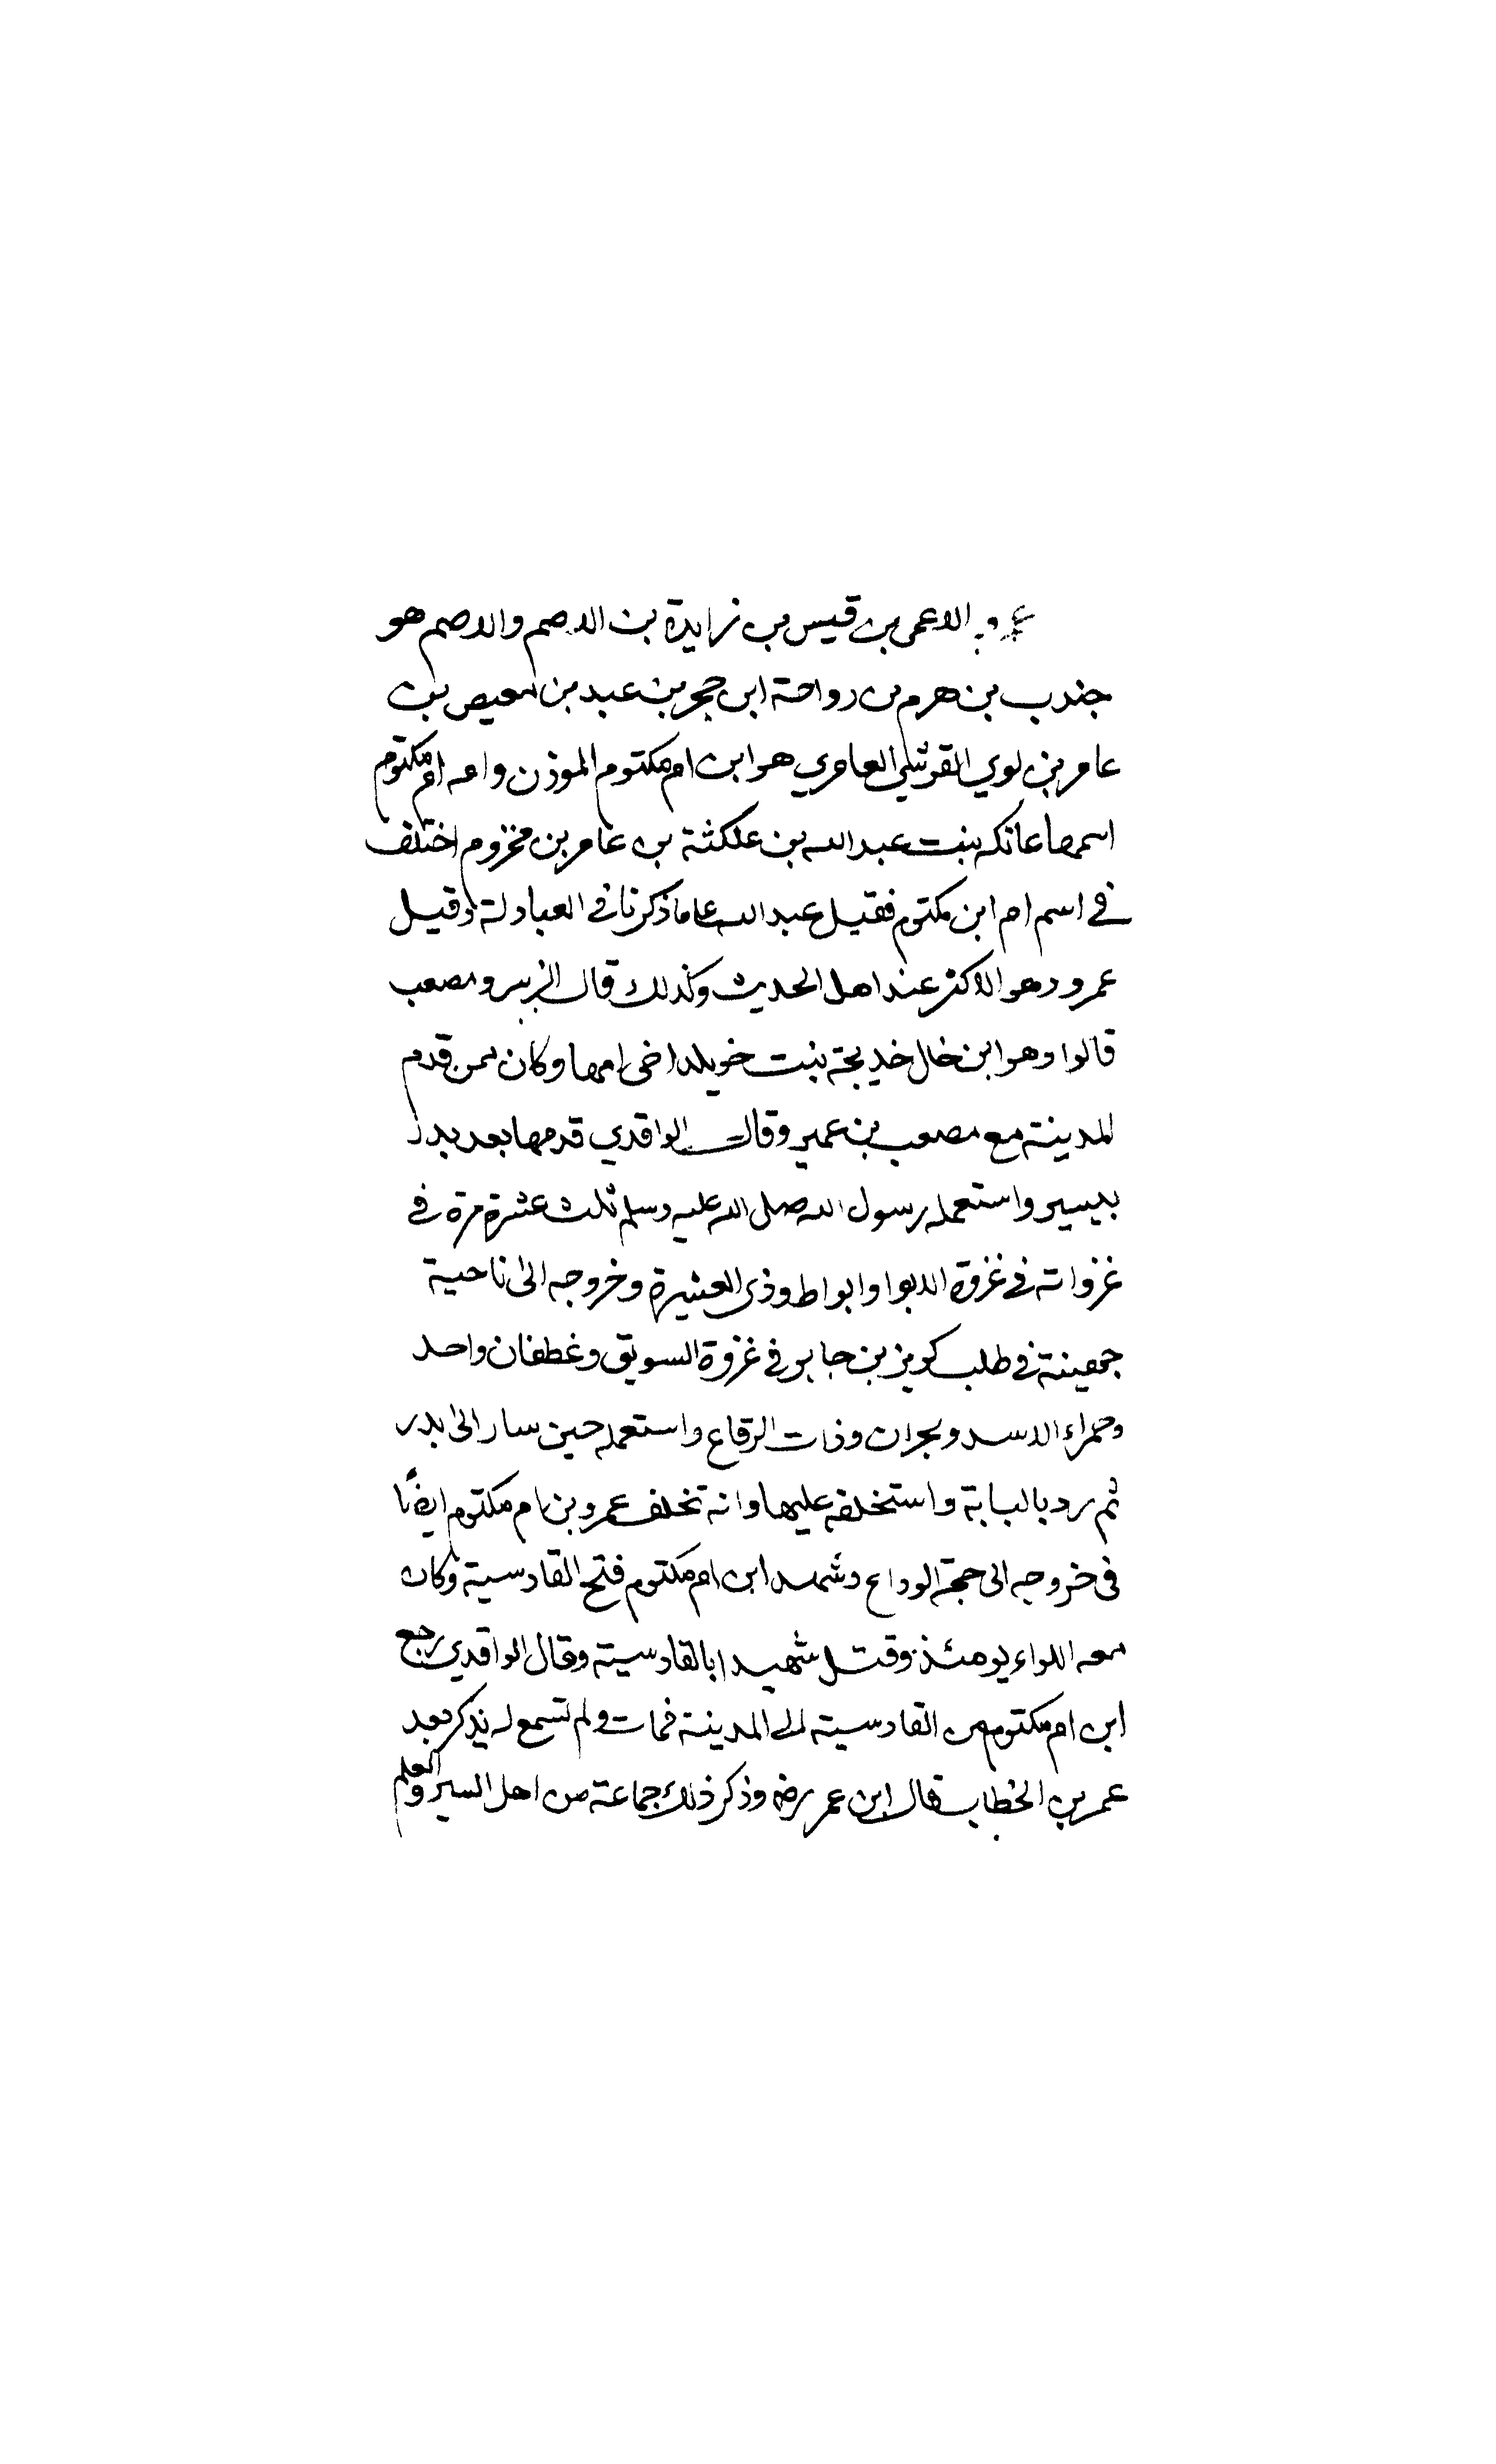 عمرو الاعمى بن قيس بن زايدة بن الاصم والاصم هو
جندب بن هرم بن رواحة ابن حجر بن عبد بن معيص بن
عامر بن لوي القرشي العامري هو ابن ام مكتوم الموذن وامه ام مكتوم
اسمها عاتكه بنت عبد الله بن علكثة بن عامر بن مخزوم اختلف
في اسم ام ابن مكتوم فقيل عبد الله على ما ذكرنا في العبادلة وقيل
عمرو وهو الاكثر عند اهل الحديث وكذلك قال الزبير ومصعب
قالوا وهو ابن خال خديجة بنت خويلد اخى امها وكان ممن قدم
المدينة مع مصعب بن عمير وقال الواقدي قدمها بعد بدر
بيسير واستعمله رسول الله صلى الله عليه وسلم ثلث عشرة مرة في
غزواته في غزوة الابوا وابواط وذى العشيرة وخروجه الى ناحية
جهينة في طلب كريز بن جابر في غزوة السويق وغطفان واحد
وحمراء الاسد وبجران وذات الرقاع واستعمله حين سار الى بدر
ثم رد بالبابة واستخلفه عليها وانه تخلف عمرو بن ام مكتوم ايضًا
في خروجه الى حجة الوداع وشهد ابن ام مكتوم فتح القادسية وكان
معه اللواء يومئذ وقتل شهيدا بالقادسية وقال الواقدي رجع
ابن ام مكتوم من القادسية الى المدينة فمات ولم تسمع له بذكر بعد
عمر بن الخطاب قال ابن عمر رضه وذكر ذلك جماعة من اهل السير والعلم